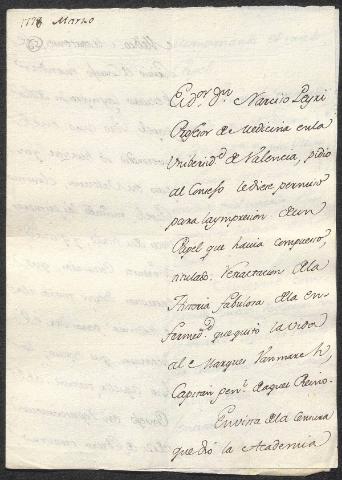 1778 Marzo
El d.or d.n Narciso Peyri
Profesor de Medicina en la
Universid.d de Valencia, pidio
al Consejo le diese permiso
para la ympresion de un
Papel que havia compuesto,
titulado: Veneracion de la
Historia fabulosa de la en-
fermed.d que quitó la vida
al Marques Vanmarck,
Capitan gen.l de aquel Reino.
En vista de la censura
que dió la Academia